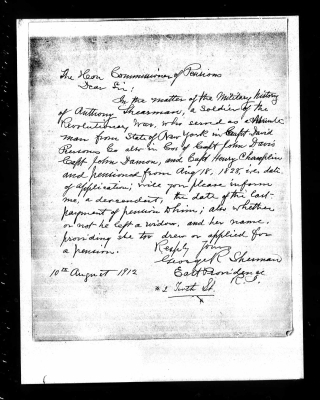 The Hon Commissioner of Pensions
Dear Sir;
In the matter of the Military history
of Anthony Shearman, a Soldier of the
Revolutionary War, who served as a
man from State of New York in Capt David
Persons Co also in Cos of Capt John Davis
Capt. John Damon, and Capt Henry Champlin
and pensioned from Aug 18, 1828, i.e. date
of application; will you please inform
me, a descendent, the date of the last
payment of pension to him; also whether
or not he left a widow, and her name
providing she too drew or applied for
a pension.
Resply Yours
George R Sherman
10th August 1912
East Providence
#2 Tenth St. R.I.